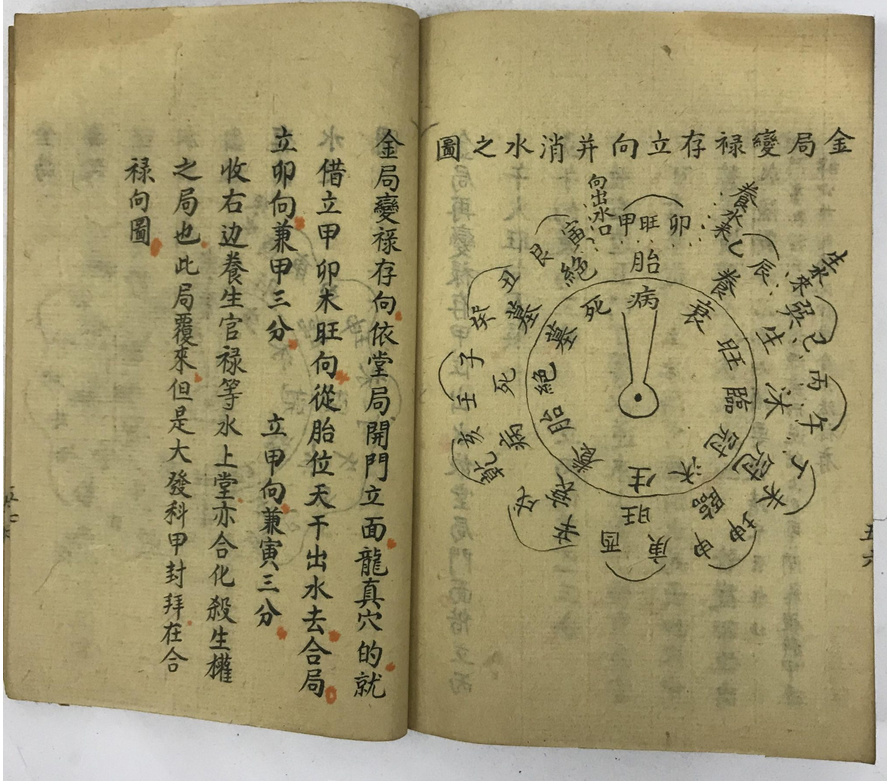 金局變禄存立向并消水之圖
向出水口
養水來
生水來
甲旺卯
乙辰
巽巳
丙午
丁未
坤申
庚酉
辛戌
乾亥
壬子
癸丑
艮寅
胎養生沐冠臨旺衰病死墓絕
病衰旺臨冠沐生養胎絕墓死
五六
金局變禄存向依堂局開門立面龍真穴的就
借立甲卯未旺向從胎位天干出水去合局
立卯向兼甲三分 立甲向兼寅三分
收右边養生官禄等水上堂亦合化殺生權
之局也此局覆來但是大發科甲封拜在合
禄向圖